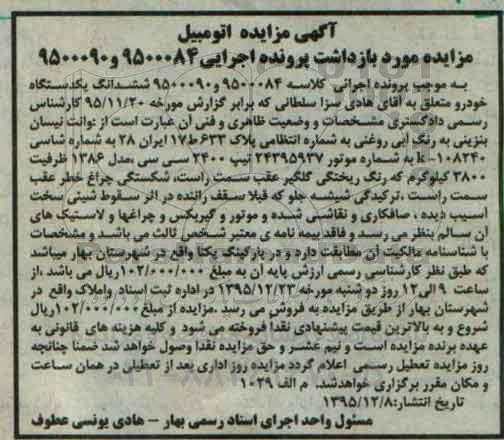 آگهی مزایده اتومبیل
مزایده مورد بازداشت پرونده اجرایی ۹۵۰۰۰۸۴ و ۹۵۰۰۰۹۰
به موجب پرونده اجرائی کلاسه ۹۵۰۰۰۸۴ و ۹۵۰۰۰۹۰ ششدانگ یکدستگاه
خودرو متعلق به آقای هادی سزا سلطانی که برابر گزارش مورخه ۹۵/۱۱/۲۰ کارشناس
رسمی دادگستری مشخصات و وضعیت ظاهری و فنی آن عبارت است از :وانت نیسان
بنزینی به رنگ آبی روغنی به شماره انتظامی پلاک ۶۳۳ط۱۷ ایران ۲۸ به شماره شاسی
k-۱۰۸۲۴۰ به شماره موتور ۲۴۳۹۵۹۳۷ تیپ ۲۴۰۰ سی سی ،مدل ۱۳۸۶ ظرفیت
۳۸۰۰ کیلوگرم که رنگ ریختگی گلگیر عقب سمت راست، شکستگی چراغ خطر عقب
سمت راست ،ترکیدگی شیشه جلو که قبلا سقف راننده در اثر سقوط شیئی سخت
آسیب دیده ، صافکاری و نقاشی شده و موتور و گیربکس و چراغها و لاستیک های
آن سالم بنظر می رسد و فاقد بیمه نامه ی معتبر شخص ثالث می باشد و مشخصات
با شناسنامه مالکیت آن مطابقت دارد و در پارکینگ یکتا واقع در شهرستان بهار میباشد
که طبق نظر کارشناسی رسمی ارزش پایه آن به مبلغ ۱۰۲/۰۰۰/۰۰۰ریال می باشد ،از
ساعت ۹ الی۱۲ روز دو شنبه مورخه ۱۳۹۵/۱۲/۲۳ در اداره ثبت اسناد واملاک واقع در
شهرستان بهار از طریق مزایده به فروش می رسد .مزایده از مبلغ ۱۰۲/۰۰۰/۰۰۰ریال
شروع و به بالاترین قیمت پیشنهادی نقدا فروخته می شود و کلیه هزینه های قانونی به
عهده برنده مزایده است و نیم عشر و حق مزایده نقدا وصول خواهد شد ضمنا چنانچه
روز مزایده تعطیل رسمی اعلام گردد مزایده روز اداری بعد از تعطیلی در همان ساعت
و مکان مقرر برگزاری خواهدشد. م الف ۱۰۲۹
تاریخ انتشار:۱۳۹۵/۱۲/۸
مسئول واحد اجرای اسناد رسمی بهار – هادی یونسی عطوف